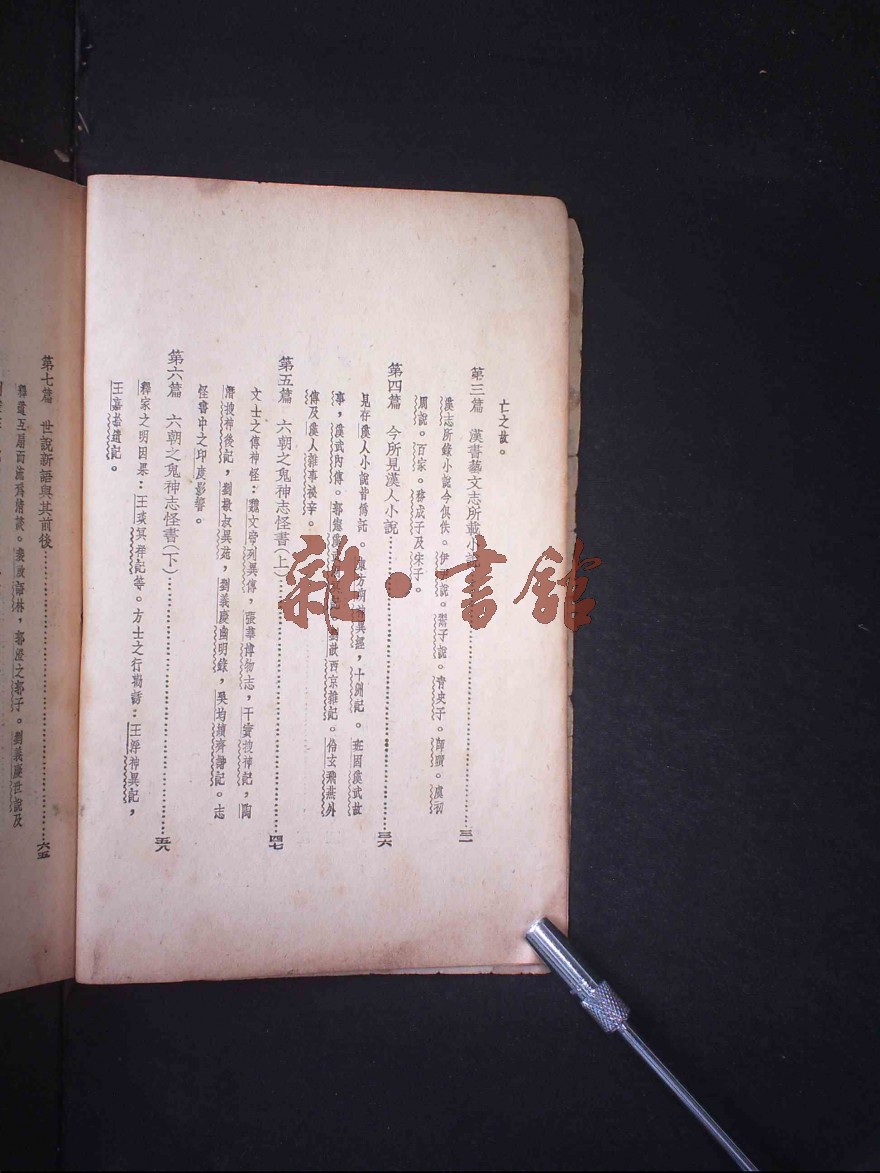 亡之故。
第三篇 漢書藝文志所載小說……三一
漢志所錄小說今俱佚。伊尹說。鬻子說。青史子。師曠。虞初
周說。百家。務成子及宋子。
第四篇 今所見漢人小說……三六
見存漢人小說皆僞託。東方朔神異經,十洲記。班固漢武故
事,漢武內傳。郭憲漢武洞冥記。劉歆西京雜記。伶玄飛燕外
傳及漢人雜事祕辛。
第五篇 六朝之鬼神志怪書(上)……四七
文士之傳神怪:魏文帝列異傳,張華博物志,干寶搜神記,陶
潛搜神後記,劉敬叔異苑,劉義慶幽明錄,吳均續齊諧記。志
怪書中之印度影響。
第六篇 六朝之鬼神志怪書(下)……五八
釋家之明因果:王琰冥祥記等。方士之行勸誘:王浮神異記,
王嘉拾遺記。
第七篇 世說新語與其前後……六五
釋道互扇而流爲清談。裴啟語林,郭澄之郭子。劉義慶世說及
雜·書館